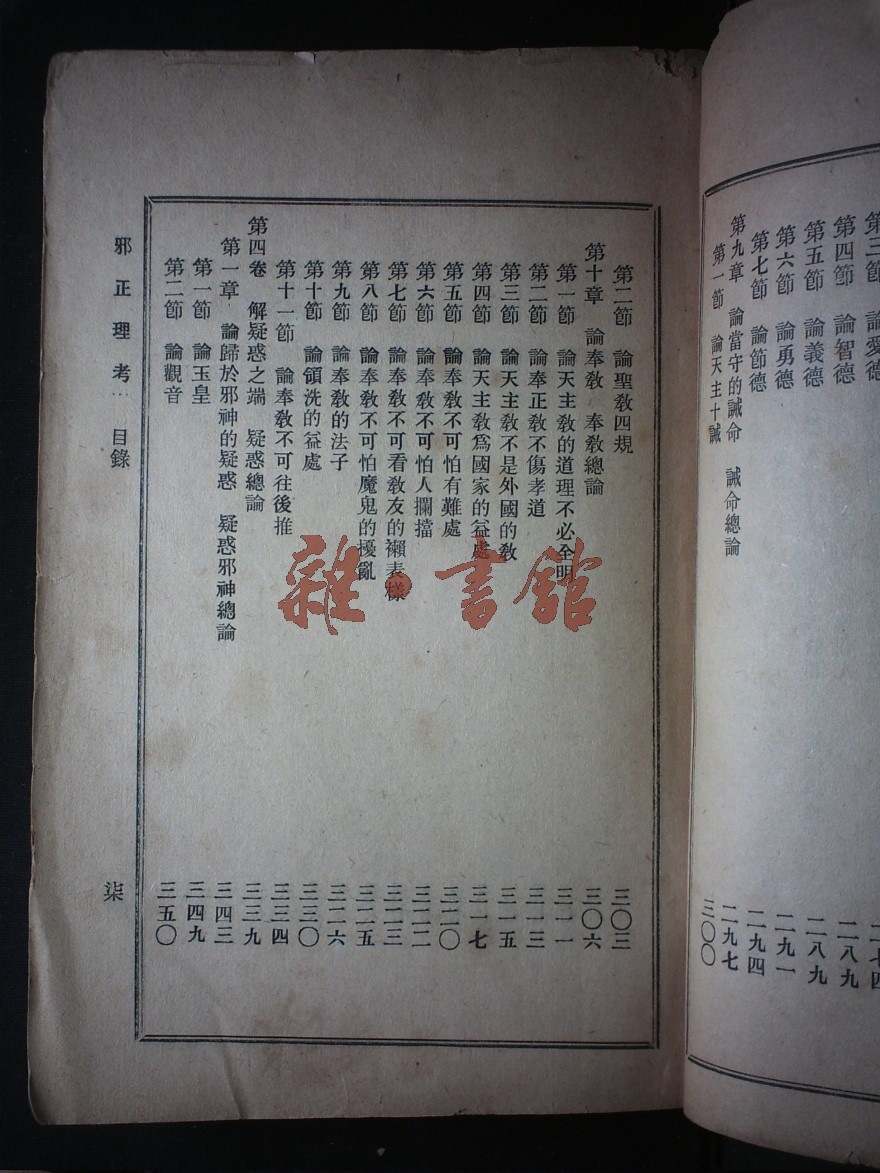 第三節 論愛德 二七四
第四節 論智德 二八九
第五節 論義德 二八九
第六節 論勇德 二九一
第七節 論節德 二九四
第九章 論當守的誡命 誡命總論 二九七
第一節 論天主十誡 三〇〇
第二節 論聖教四規 三〇三
第十章 論奉教 奉教總論 三〇六
第一節 論天主教的道理不必全明 三一一
第二節 論奉正教不傷孝道 三一三
第三節 論天主教不是外國的教 三一五
第四節 論天主教爲國家的益處 三一七
第五節 論奉教不可怕有難處 三二〇
第六節 論奉教不可怕人攔擋 三二二
第七節 論奉教不可看教友的襰表樣 三二三
第八節 論奉教不可怕魔鬼的擾亂 三二五
第九節 論奉教的法子 三二六
第十節 論領洗的益處 三三〇
第十一節 論奉教不可往後推 三三四
第四卷 解疑惑之端 疑惑總論 三三九
第一章 論歸於邪神的疑惑 疑惑邪神總論 三四三
第一節 論玉皇 三四九
第二節 論觀音 三五〇
邪正理考‥ 目錄 柒
雜·書館